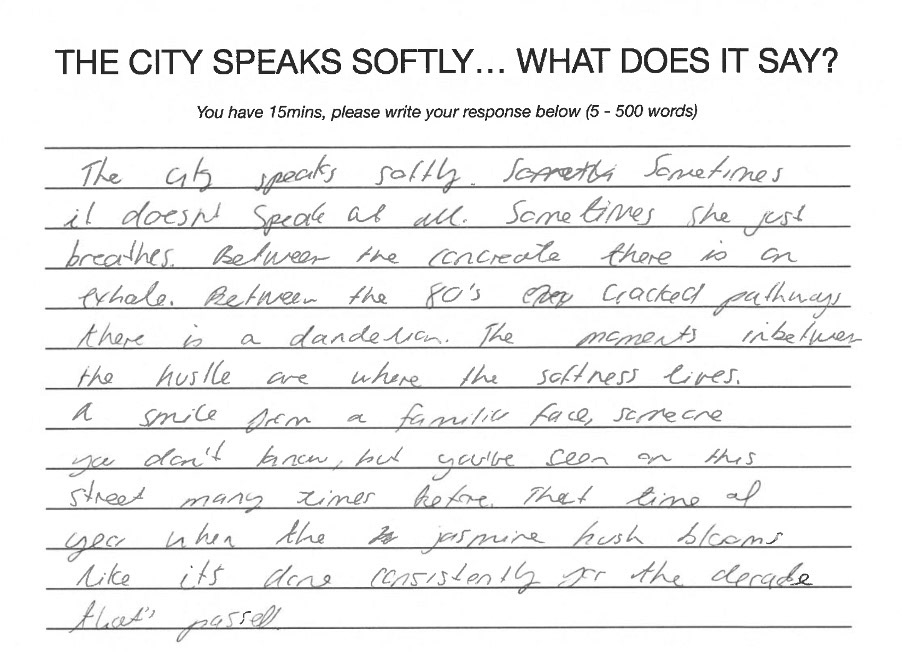 THE CITY SPEAKS SOFTLY... WHAT DOES IT SAY?
You have 15mins, please write your response below (5 - 500 words)
The city speaks softly. Sometimes
it doesn't speak at all. Sometimes she just
breathes. Between the concreate there is an
exhale. Between the 80's cracked pathways
there is a dandelion. The moments inbetween
the hustle are where the softness lives.
A smile from a familiar face, someone
you don't know, but you've seen on this
street many times before. That time of
year when the jasmine bush blooms
like it's done consistently for the decade
that's passed.